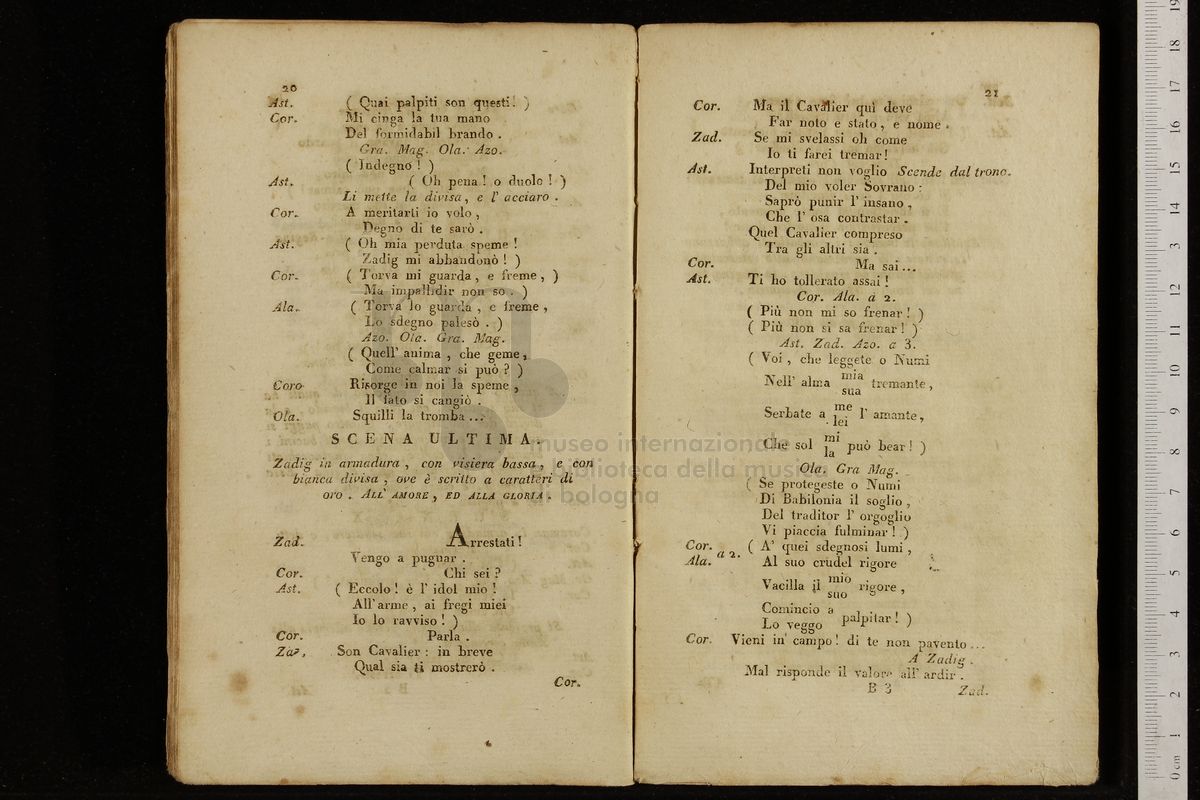 20
Ast. ( Quai palpiti son questi! )
Cor. Mi cinga la tua mano
Del formidabil brando .
Gra. Mag. Ola. Azo.
( Indegno ! )
Ast. ( Oh pena ! o duolo ! )
Li mette la divisa , e l' acciaro .
Cor. A meritarti io volo ,
Degno di te sarò .
Ast. ( Oh mia perduta speme !
Zadig mi abbandonò ! )
Cor. ( Torva mi guarda , e freme , )
Ma impallidir non so . )
Ala. ( Torva lo guarda , e freme ,
Lo sdegno palesò . )
Azo. Ola. Gra. Mag.
( Quell' anima , che geme ,
Come calmar si può ? )
Coro Risorge in noi la speme ,
Il fato si cangiò .
Ola. Squilli la tromba ...
SCENA ULTIMA.
Zadig in armadura , con visiera bassa , e con
bianca divisa , ove è scritto a caratteri di
oro . ALL' AMORE , ED ALLA GLORIA .
Zad. Arrestati !
Vengo a pugnar .
Cor. Chi sei ?
Ast. ( Eccolo ! è l' idol mio !
All' arme , ai fregi miei
Io lo ravviso ! )
Cor. Parla .
Zad. Son Cavalier : in breve
Qual sia ti mostrerò .
Cor.
21
Cor. Ma il Cavalier quì deve
Far noto e stato , e nome .
Zad. Se mi svelassi oh come
Io ti farei tremar !
Ast. Interpreti non voglio Scende dal trono.
Del mio voler Sovrano :
Saprò punir l' insano ,
Che l' osa contrastar .
Quel Cavalier compreso
Tra gli altri sia .
Cor. Ma sai ...
Ast. Ti ho tollerato assai !
Cor. Ala. a 2.
( Più non mi so frenar ! )
( Più non si sa frenar ! )
Ast. Zad. Azo. a 3.
( Voi , che leggete o Numi
Nell' alma mia tremante ,
sua
Serbate a me l' amante ,
lei
Che sol mi può bear ! )
la
Ola. Gra Mag.
( Se protegeste o Numi
Di Babilonia il soglio ,
Del traditor l' orgoglio
Vi piaccia fulminar ! )
Cor. a 2. ( A' quei sdegnosi lumi ,
Ala. Al suo crudel rigore
Vacilla il mio rigore ,
suo
Comincio a palpitar ! )
Lo veggo
Cor. Vieni in campo ! di te non pavento ...
A Zadig .
Mal risponde il valore all' ardir .
B 3 Zad.
museo internazionale
biblioteca della musica
di bologna
0 cm 1 2 3 4 5 6 7 8 9 10 11 12 13 14 15 16 17 18 19